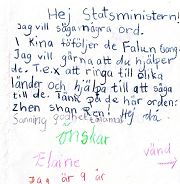 Hej Statsministern!
Jag vill säga några ord.
I kina föföljer de Falun Gong.
Jag vill gärna att du hjälper
de. T.e.x att ringa till olika
länder och hjälpa till att säga
till de. Tänk på de här orden:
zhen shan Ren! Hej då
Sanning godhet tålamod
önskar
Elaine vänd →
Jag är 9 år